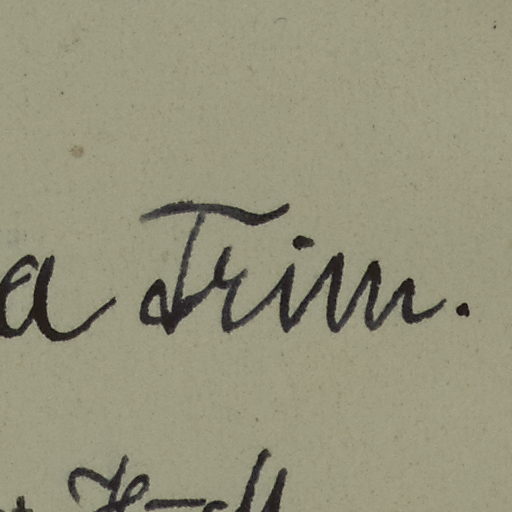 a Trim.